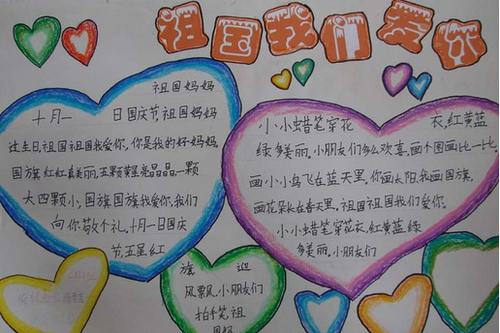 祖国我们爱你
祖国妈妈
十月一 日国庆节祖国妈妈
过生日祖国祖国我爱你,你是我的好妈妈,
国旗红红真美丽,五颗星星亮晶晶,一颗
大四颗小,国旗国旗我爱你,我们
向你敬个礼,十月一日国庆
节,五星红
小小蜡笔穿花 衣,红黄蓝
绿多美丽,小朋友们多么欢喜,画个图画比一比,
画小小鸟飞在蓝天里,你画太阳,我画国旗,
画花朵长在春天里,祖国祖国我们爱你。
小小蜡笔穿花衣,红黄蓝绿
多美丽,小朋友们
旗 迎
风飘飘,小朋友们
拍手笔祖
国妈